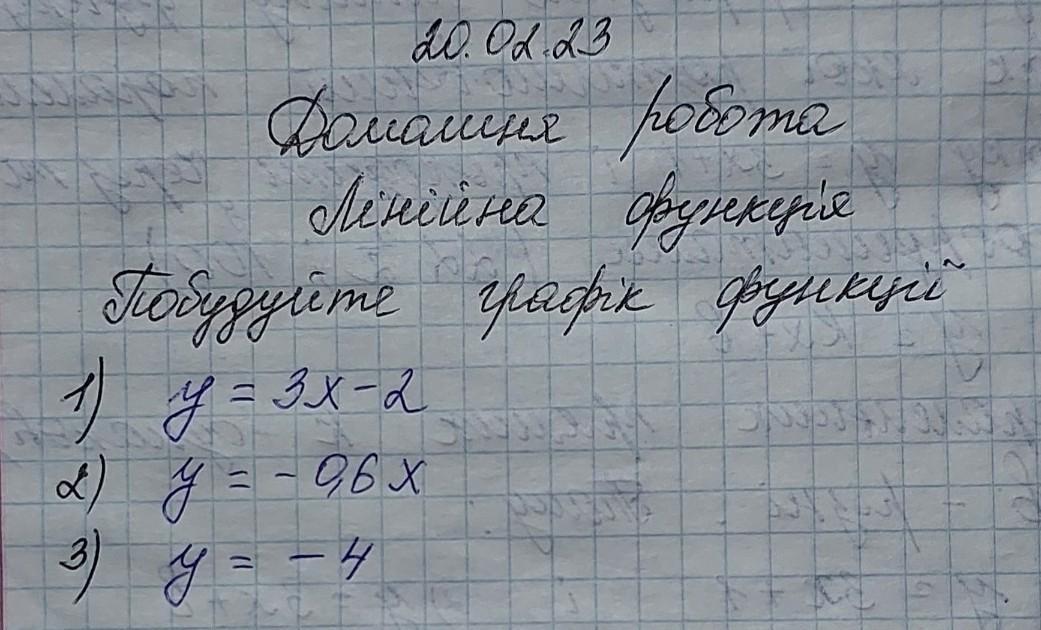 20.02.23
Домашня робота
Лінійна функція
Побудуйте графік функцій
1) y = 3x - 2
2) y = - 0,6 x
3) y = - 4